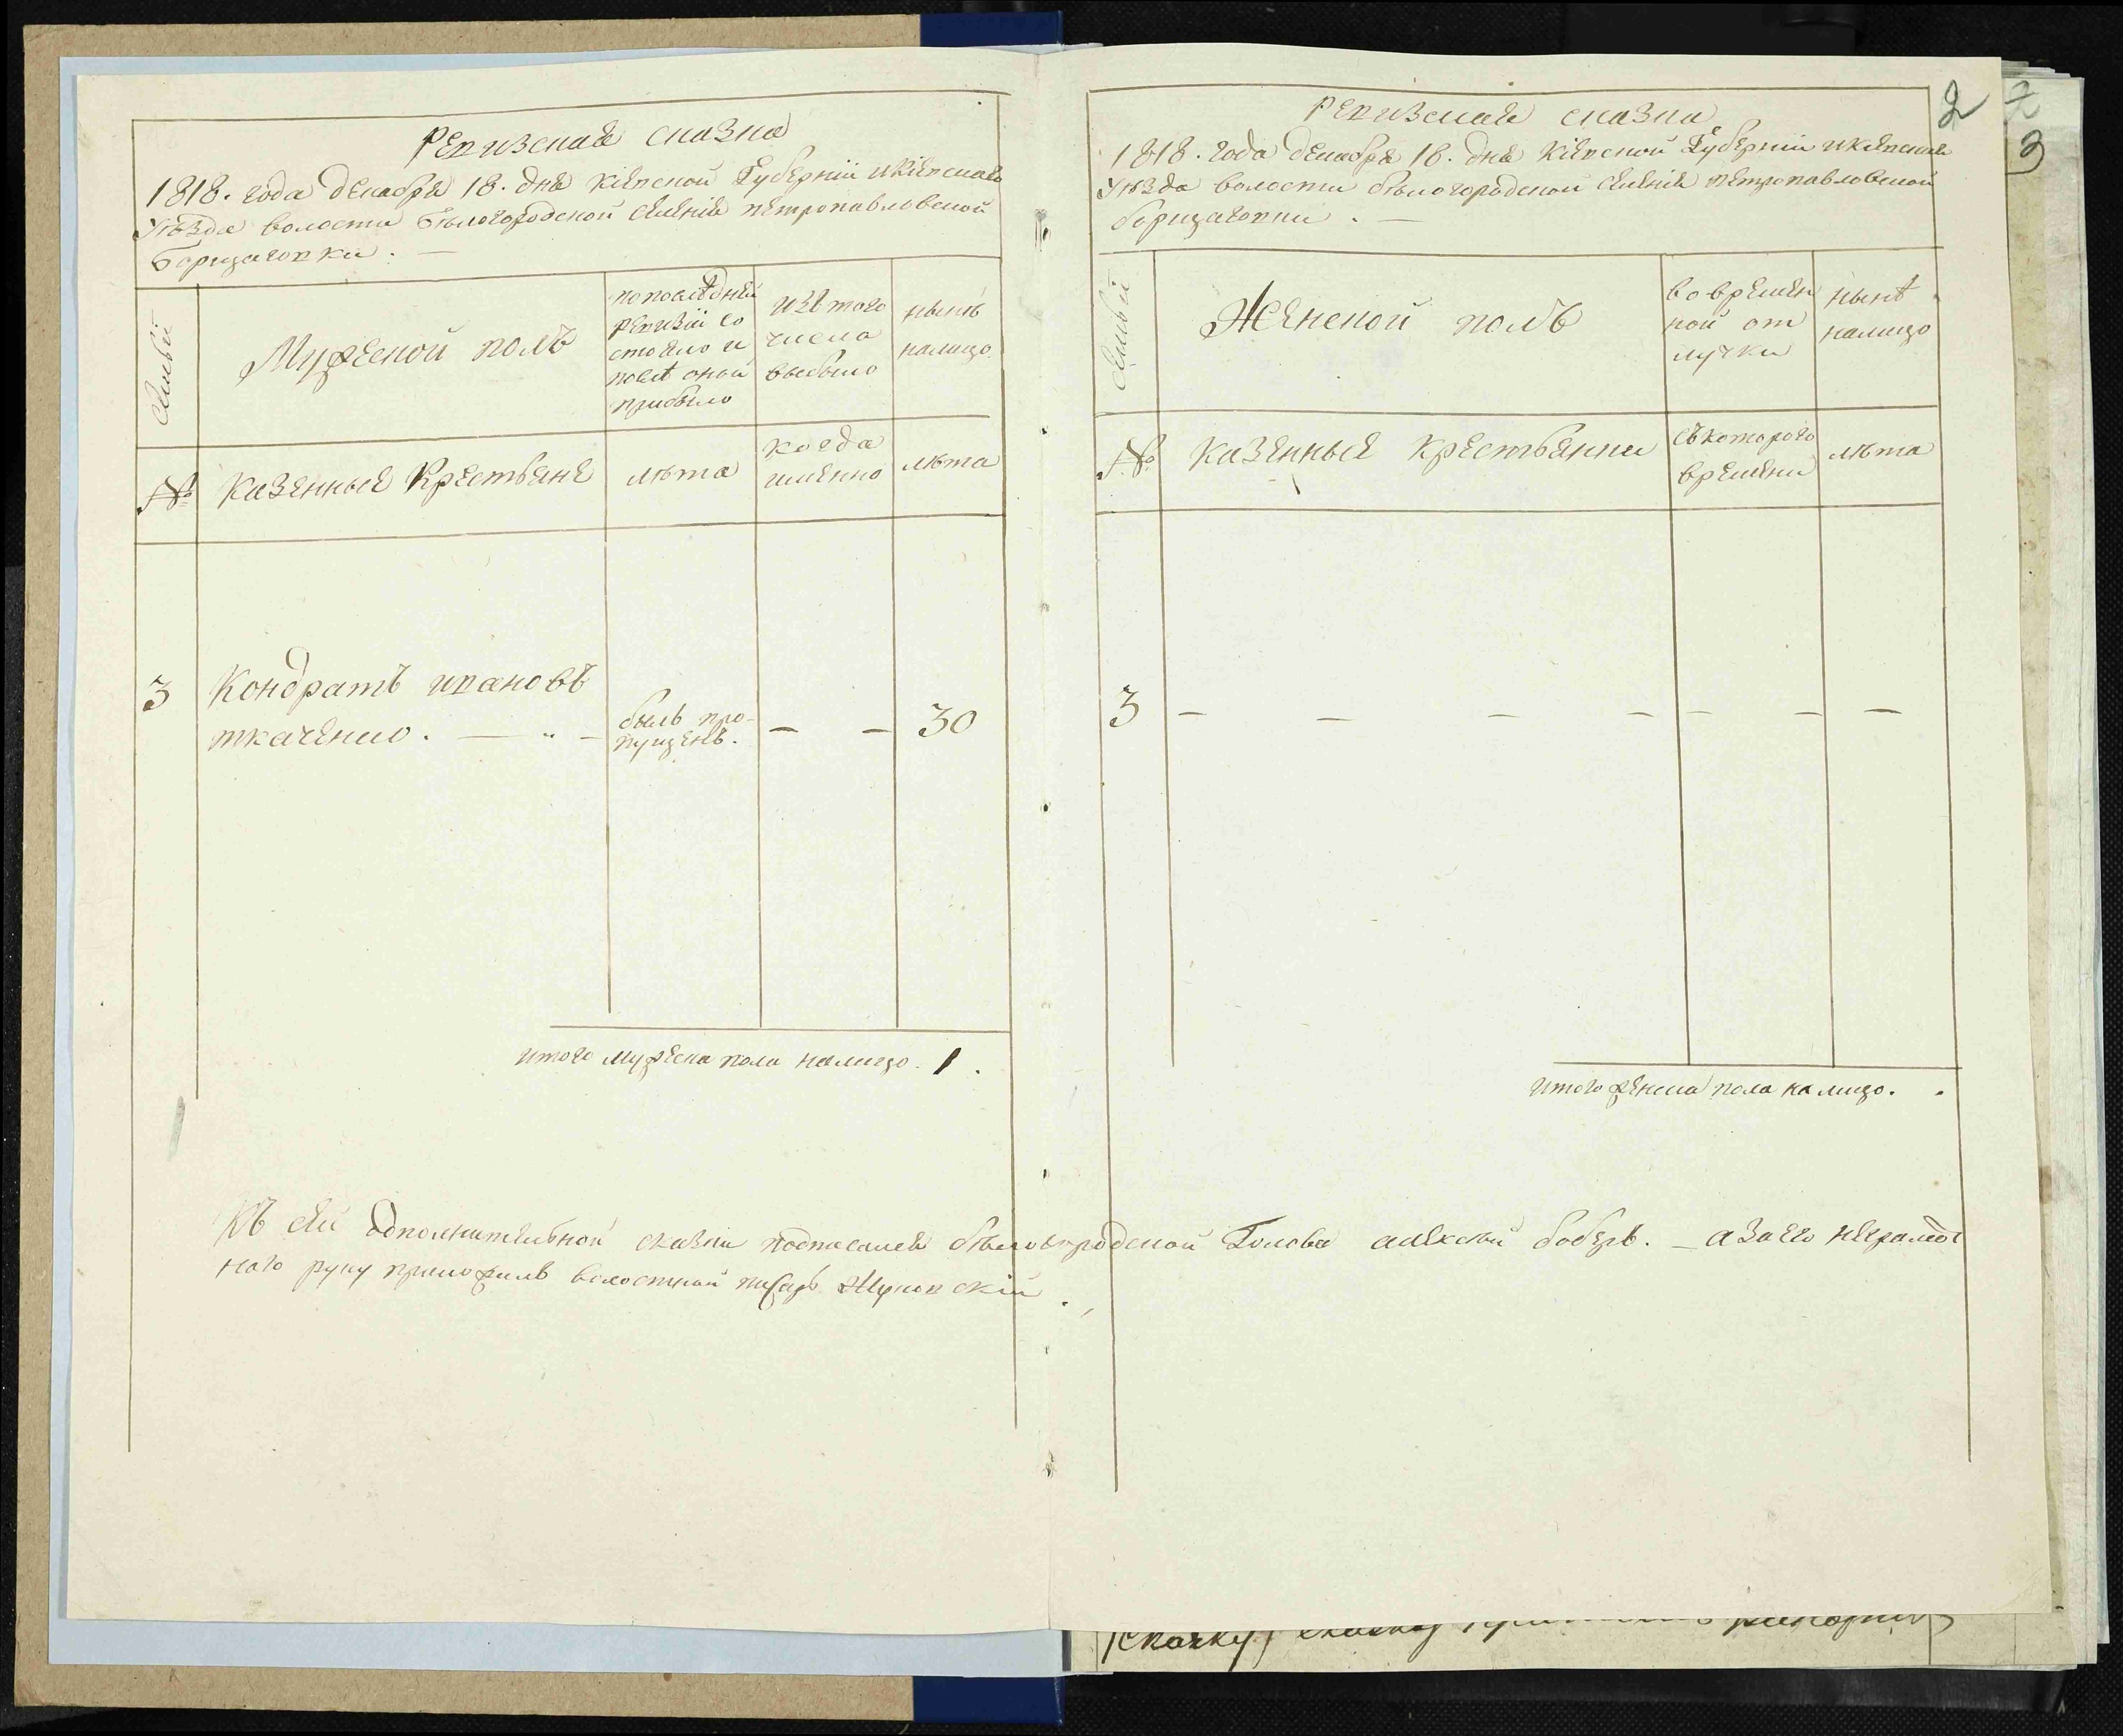 Ревизская сказка
1818. года декабря 18. дня Кіевской Губерніи и Кіевскаго
Уѣзда волости Бѣлогородской селенія петропавловской
Борщаговки. —
Семьи
Мужеской полъ
по послѣдней
ревизіи со
стояло и
послѣ оной
прибыло
изъ того
числа
выбыло
нынѣ
налицо
№
Казенные Крестьяне
лѣта
когда
именно
лѣта
3
Кондратъ ивановъ
ткаченко. — „ —
былъ про-
пущенъ.
— —
30
итого мужеска пола налицо. 1.
2
Ревизская сказка
1818. года декабря 18. дня Кіевской Губерніи и кіевскаго
Уѣзда волости бѣлогородской селенія петропавловской
борщаговки. —
Семьи
Женской полъ
во времен
ной от
лучки
нынѣ
налицо
№
Казенные крестьянки
съ которого
времени
лѣта
3
— — — — — — —
итого женска пола налицо. .
Къ сей дополнительной сказки подписался бѣлогородской Голова алексѣй боберъ. — а за его неграмот
ного руку приложилъ волостной писарь Жуковскій.
2
3
сказку